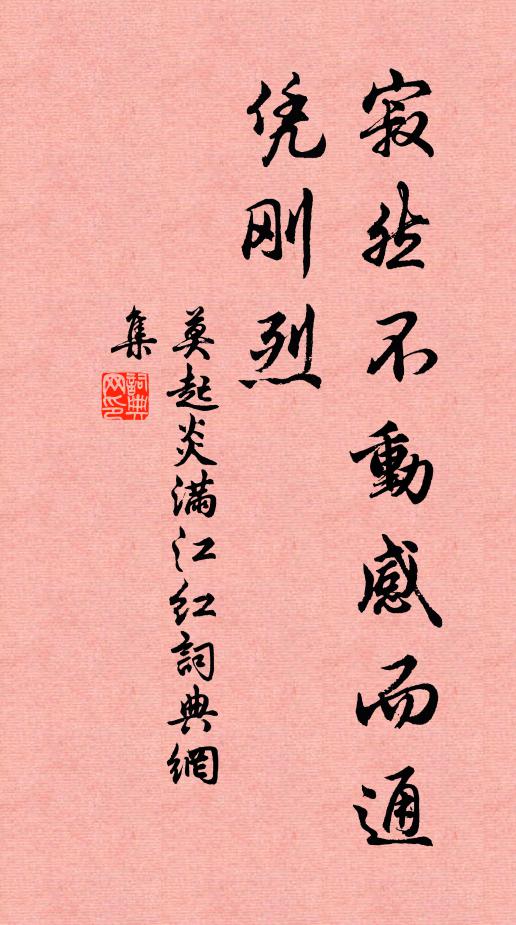 寂然不動感而通
凭刚烈
莫起炎满江红詞典網
集
詞典網印